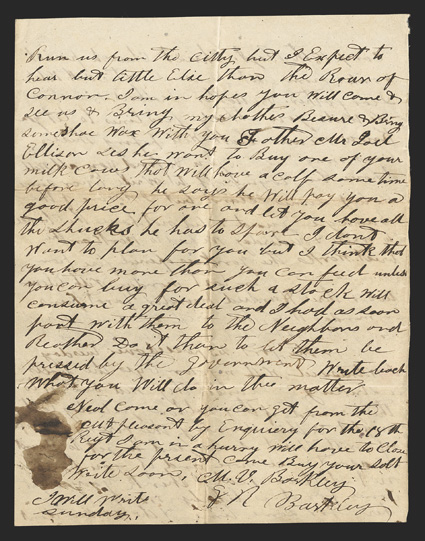 from us from the Citty but I Expect to
hear but little Else than the Roar of
Connon. I am in hopes you Will Come &
see us & Bring my clothes Besure & Bring
some shoe Wax With you Father Mr Joel
Ellison Les he want to Buy one of your
milk Cows that Will have a calf some time
before long he says he Will pay you a
good price for one and let you have all
the shucks he has to Spare I dont
Want to plan for you but I think that
you have more than you can feed unless
you can buy for such a stock Will
consume a great deal and I had as soon
part With them to the Neighbors and
Reather Do it than to let them be
pressed by the Government Write back
What you Will do in the matter
Ned Come or you can get from the
by Enquiery for the 18th
Regt I am in a hurry Will have to Close
for the present Come Buy your Salt
Write Soon, M. V. Barkley
I Will Write F R Barkley
Sunday.